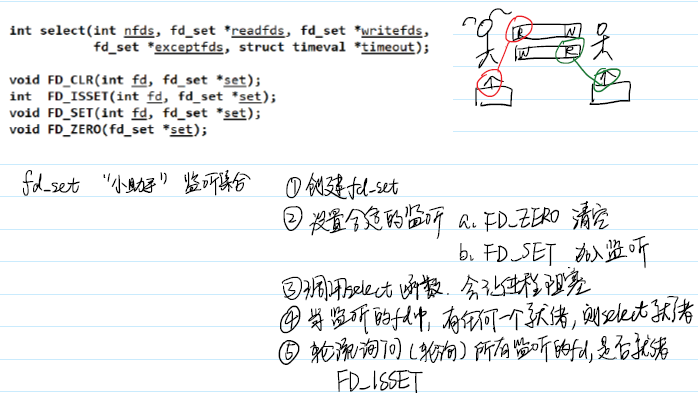 int select(int nfds, fd_set *readfds, fd_set *writefds,
fd_set *exceptfds, struct timeval *timeout);
void FD_CLR(int fd, fd_set *set);
int FD_ISSET(int fd, fd_set *set);
void FD_SET(int fd, fd_set *set);
void FD_ZERO(fd_set *set);
R W
W R
fd_set "小助手" 监听集合
① 创建fd_set
② 设置合适的监听 a. FD_ZERO 清空
b. FD_SET 加入监听
③ 调用select函数. 会让进程阻塞
④ 等监听的fd中, 有任何一个就绪, 则select就绪
⑤ 轮流询问(轮询) 所有监听的fd, 是否就绪
FD_ISSET